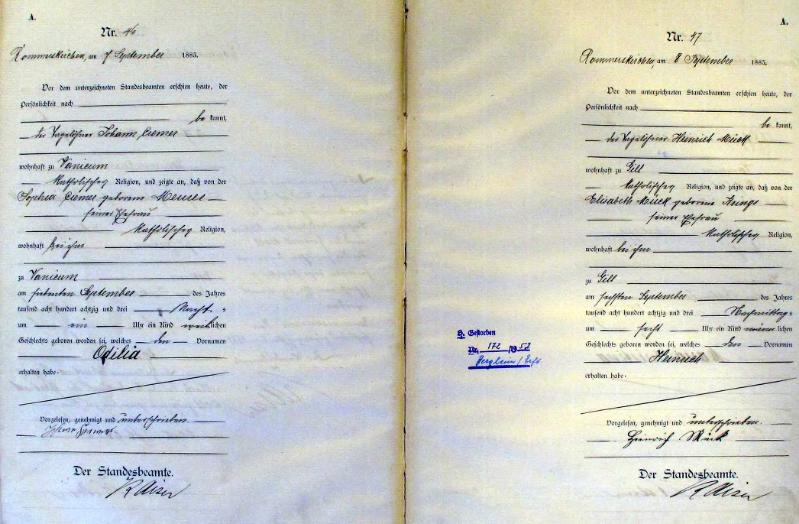 A.
Nr. 46
Rommerskirchen, am 7 September 1883.
Vor dem unterzeichneten Standesbeamten erschien heute, der
Persönlichkeit nach
be kannt,
der Tagelöhner Johann
wohnhaft zu Vanicum
katholischer Religion, und zeigte an, daß von der
Sophia geborene
seiner Ehefrau
katholischer Religion,
wohnhaft bei ihm
zu Vanicum
am siebenten September des Jahres
tausend acht hundert achtzig und drei Nachts
um ein Uhr ein Kind weiblichen
Geschlechts geboren worden sei, welches den Vornamen
Odilia
erhalten habe.
Vorgelesen, genehmigt und unterschrieben
Der Standesbeamte.
A.
Nr. 47
Rommerskirchen, am 8 September 1883.
Vor dem unterzeichneten Standesbeamten erschien heute, der
Persönlichkeit nach
be kannt,
der Tagelöhner Heinrich Mück
wohnhaft zu Gill
katholischer Religion, und zeigte an, daß von der
Elisabeth Mück geborene
seiner Ehefrau
katholischer Religion,
wohnhaft bei ihm
zu Gill
am sechsten September des Jahres
tausend acht hundert achtzig und drei Nachmittags
um sechs Uhr ein Kind männlichen
Geschlechts geboren worden sei, welches den Vornamen
Heinrich
erhalten habe.
Vorgelesen, genehmigt und unterschrieben
Heinrich Mück
Der Standesbeamte.
Gestorben
Nr. 172
Bergheim / Erft